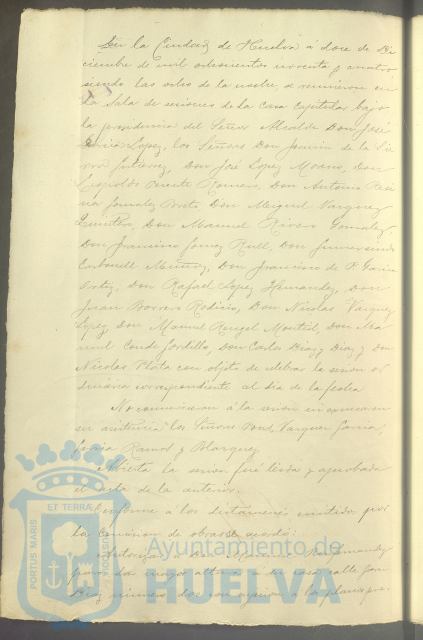 En la Ciudad de Huelva á doce de Di
ciembre de mil ochocientos noventa y cuatro
siendo las ocho de la noche, se reunieron en
la Sala de sesiones de la casa Capitular bajo
la presidencia del Señor Alcalde Don José
López, los Señores Don Joaquín de la
Gutierrez, Don José López Moreno, Don
Leopoldo Puente Romero, Don Antonio
González Don Miguel Vazquez
Quintero, Don Manuel Rivero Gonzalez
Don Francisco Gomez Rull, Don Gumersindo
Carbonell Muñoz, Don Francisco de P. García
Ortiz, Don Rafael López Hernandez, Don
Juan Borrero Rodicio, Don Nicolas Vazquez
López, Don Manuel Rengel Montiel, Don Ma
nuel Conde Gordillo, Don Carlos Diaz y Diaz y Don
Nicolas Plata con objeto de celebrar la sesion or
dinaria correspondiente al dia de la fecha
No concurrieron á la sesion
su asistencia los Señores Vazquez García,
García Ramos y Blazquez
Abierta la sesion fué leida y aprobada
el acta de la anterior.
Conforme á los dictamenes emitidos por
la Comision de obras se acordó:
para dar mayor altura á la casa calle
Diaz número dos
PORTUS MARIS
ET TERRAE
CUSTODIA
Ayuntamiento de
HUELVA